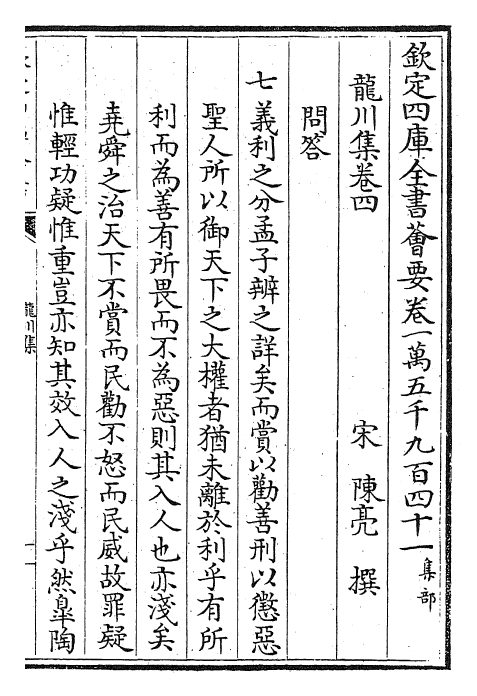 欽定四庫全書薈要卷一萬五千九百四十一集部
龍川集卷四
宋 陳亮 撰
問答
七義利之分孟子辨之詳矣而賞以勸善刑以懲惡
聖人所以御天下之大權者猶未離於利乎有所
利而為善有所畏而不為惡則其入人也亦淺矣
堯舜之治天下不賞而民勸不怒而民威故罪疑
惟輕功疑惟重豈亦知其效入人之淺乎然臯陶
龍川集